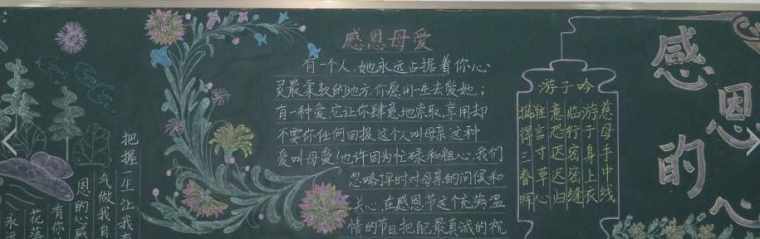 感恩母爱
有一个人，她永远占据着你心
灵最柔软的地方，你愿用一生去爱她；
有一种爱，它让你肆意地索取、享用，却
不要你任何回报。这个人叫母亲，这种
爱叫母爱！也许因为忙碌和粗心，我们
忽略了对母亲的问候和
关心，在感恩节这个充满温
情的节日把最真诚的祝
游子吟
慈母手中线
游子身上衣
临行密密缝
意恐迟迟归
谁言寸草心
报得三春晖
感恩的心
把握一生让我
我做我自
恩的心感
有你
花落
永